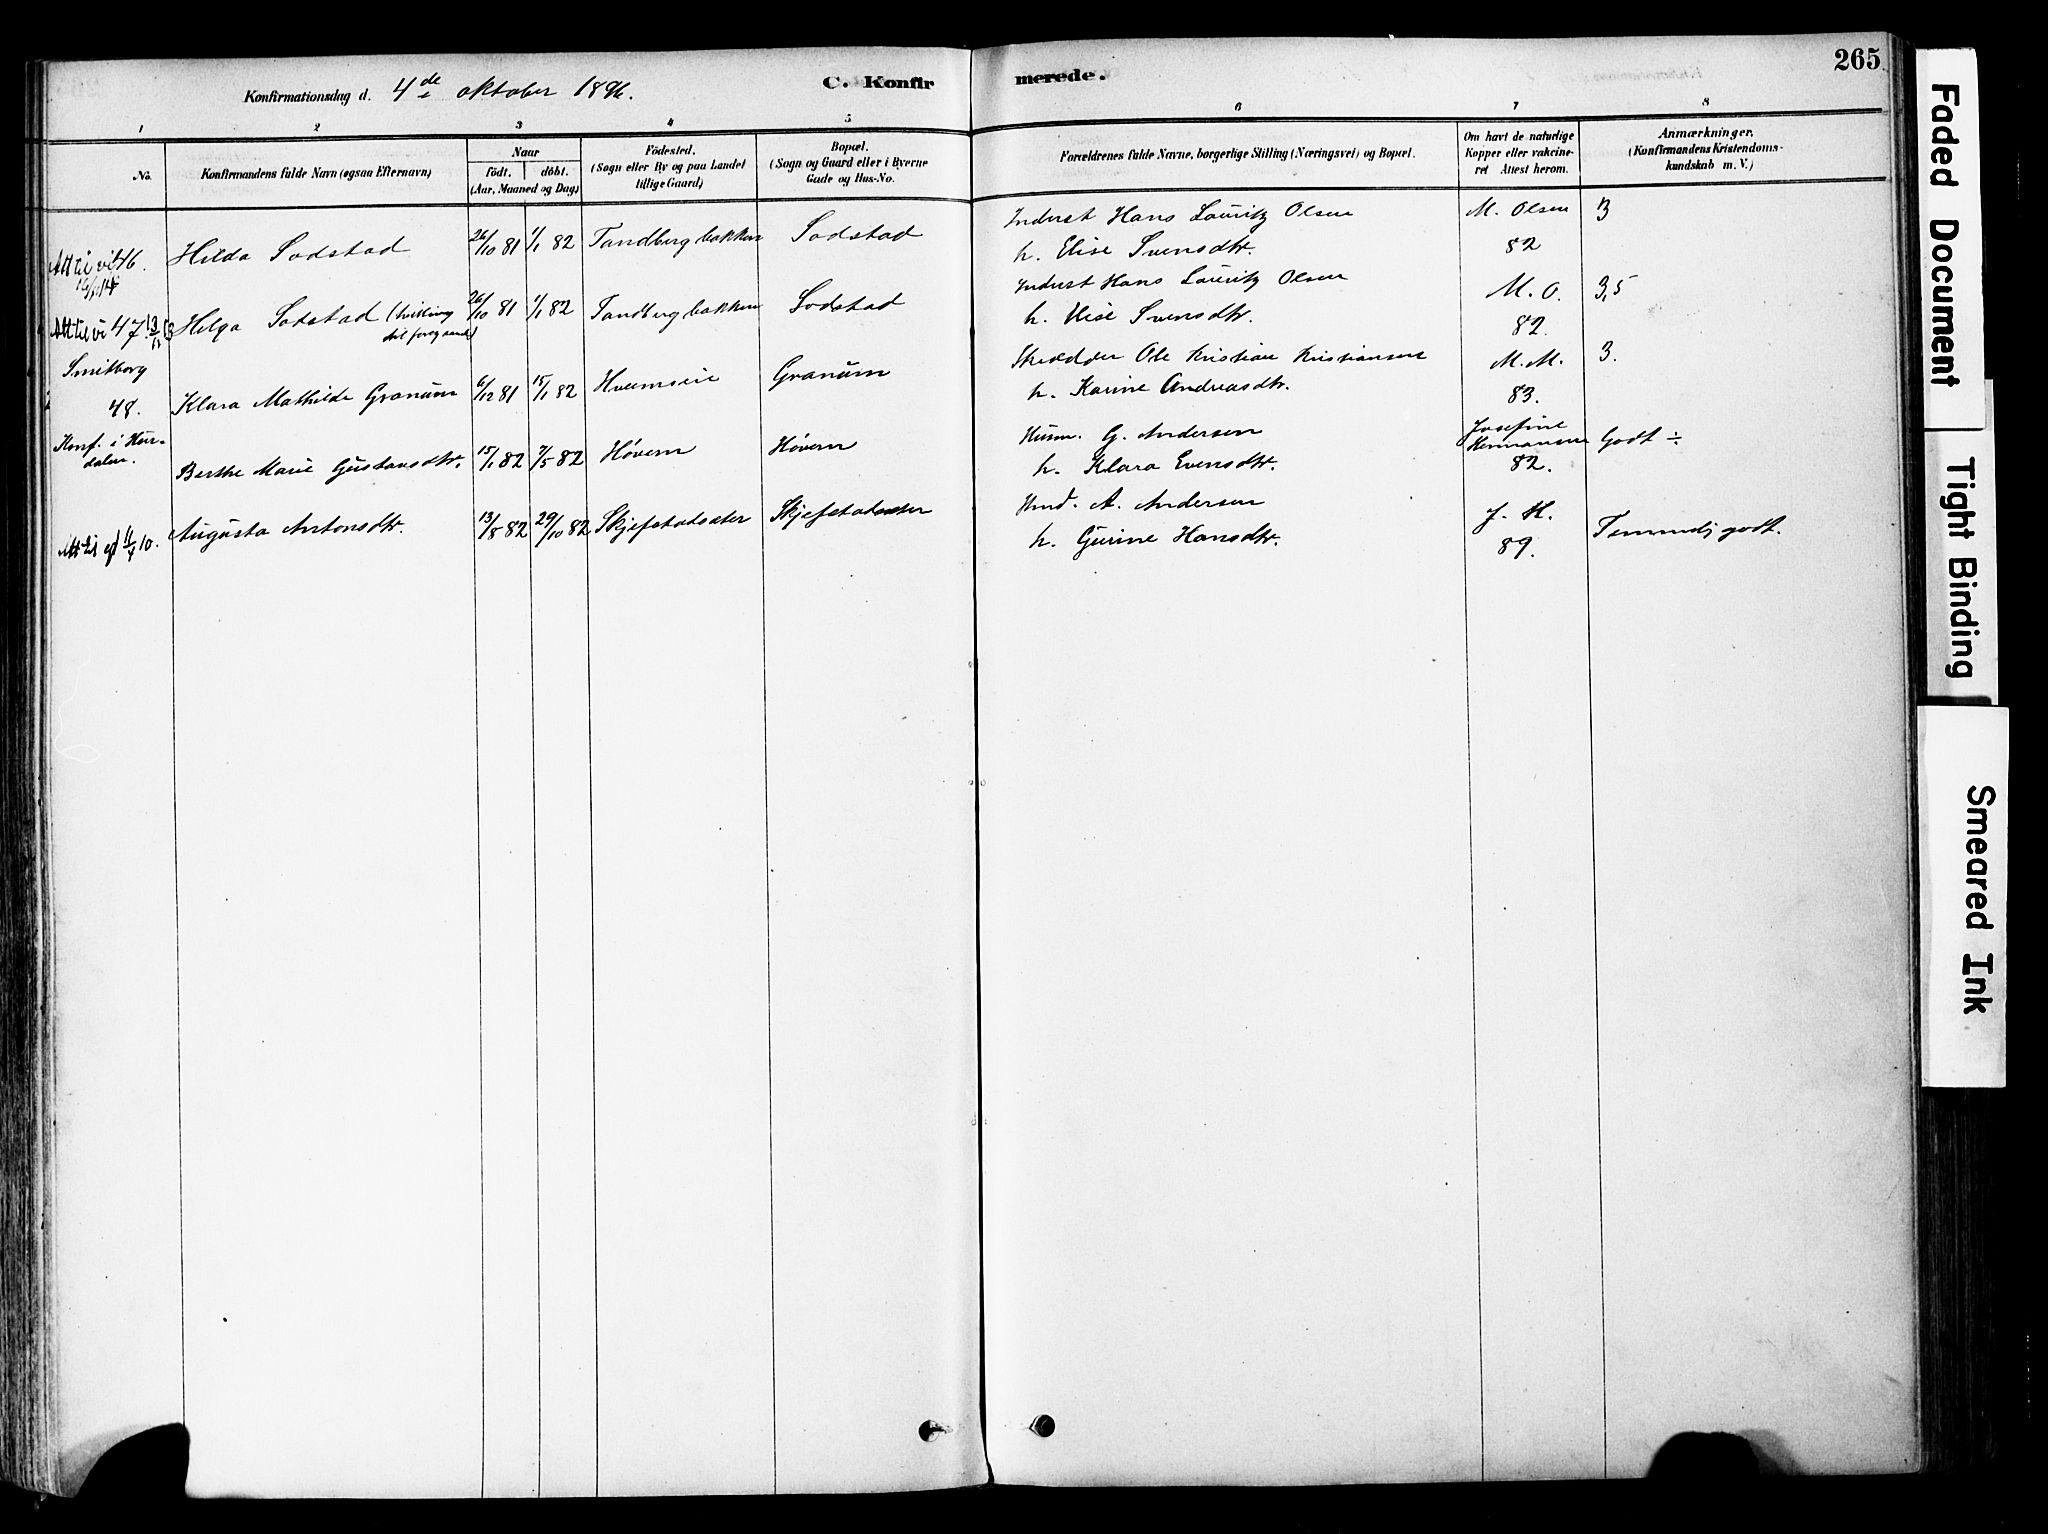 265
Konfirmationsdag d. 4de oktober 1896.
C. Konfirmerede.
1 2 3 4 5 6 7 8
No.
Konfirmandens fulde Navn (ogsaa Efternavn)
Naar
født. døbt.
(Aar, Maaned og Dag)
Fødested.
(Sogn eller By og paa Landet
tillige Gaard)
Bopæl.
(Sogn og Gaard eller i Byerne
Gade og Hus-No.
Forældrenes fulde Navne, borgerlige Stilling (Næringsvei) og Bopæl.
Om havt de naturlige
Kopper eller vakcine-
ret Attest herom.
Anmærkninger.
(Konfirmandens Kristendoms-
kundskab m. V.)
Att til vi 46. Hilda Sodstad 26/10 81 1/1 82 Tandbergbakken Sodstad Inderst Hans Lauritz Olsen M. Olsen 3
h. Elise Svensdtr. 82
Att til vi 47. Helga Sodstad (tvilling 26/10 81 1/1 82 Tandbergbakken Sodstad Inderst Hans Lauritz Olsen M. O. 3,5
til foregaaende)
h. Elise Svensdtr. 82.
Smitborg
48. Klara Mathilde Granum 6/12 81 15/1 82 Hvemseie Granum Skrædder Ole Kristian Kristiansen M. M. 3.
h. Karine Andreasdtr. 83.
Konf. i Hur-
dalen. Berthe Marie Gustavsdtr. 15/1 82 7/5 82 Høvern Høvern Husm. G. Andersen Josefine
Hermansen Godt ÷
h. Klara Evensdtr. 82.
Augusta Antonsdtr. 13/8 82 29/10 82 Skjefstadsæter Skjefstadsæter A. Andersen J. H. Temmelig godt.
h. Gurine Hansdtr. 89.
Faded Document
Tight Binding
Smeared Ink